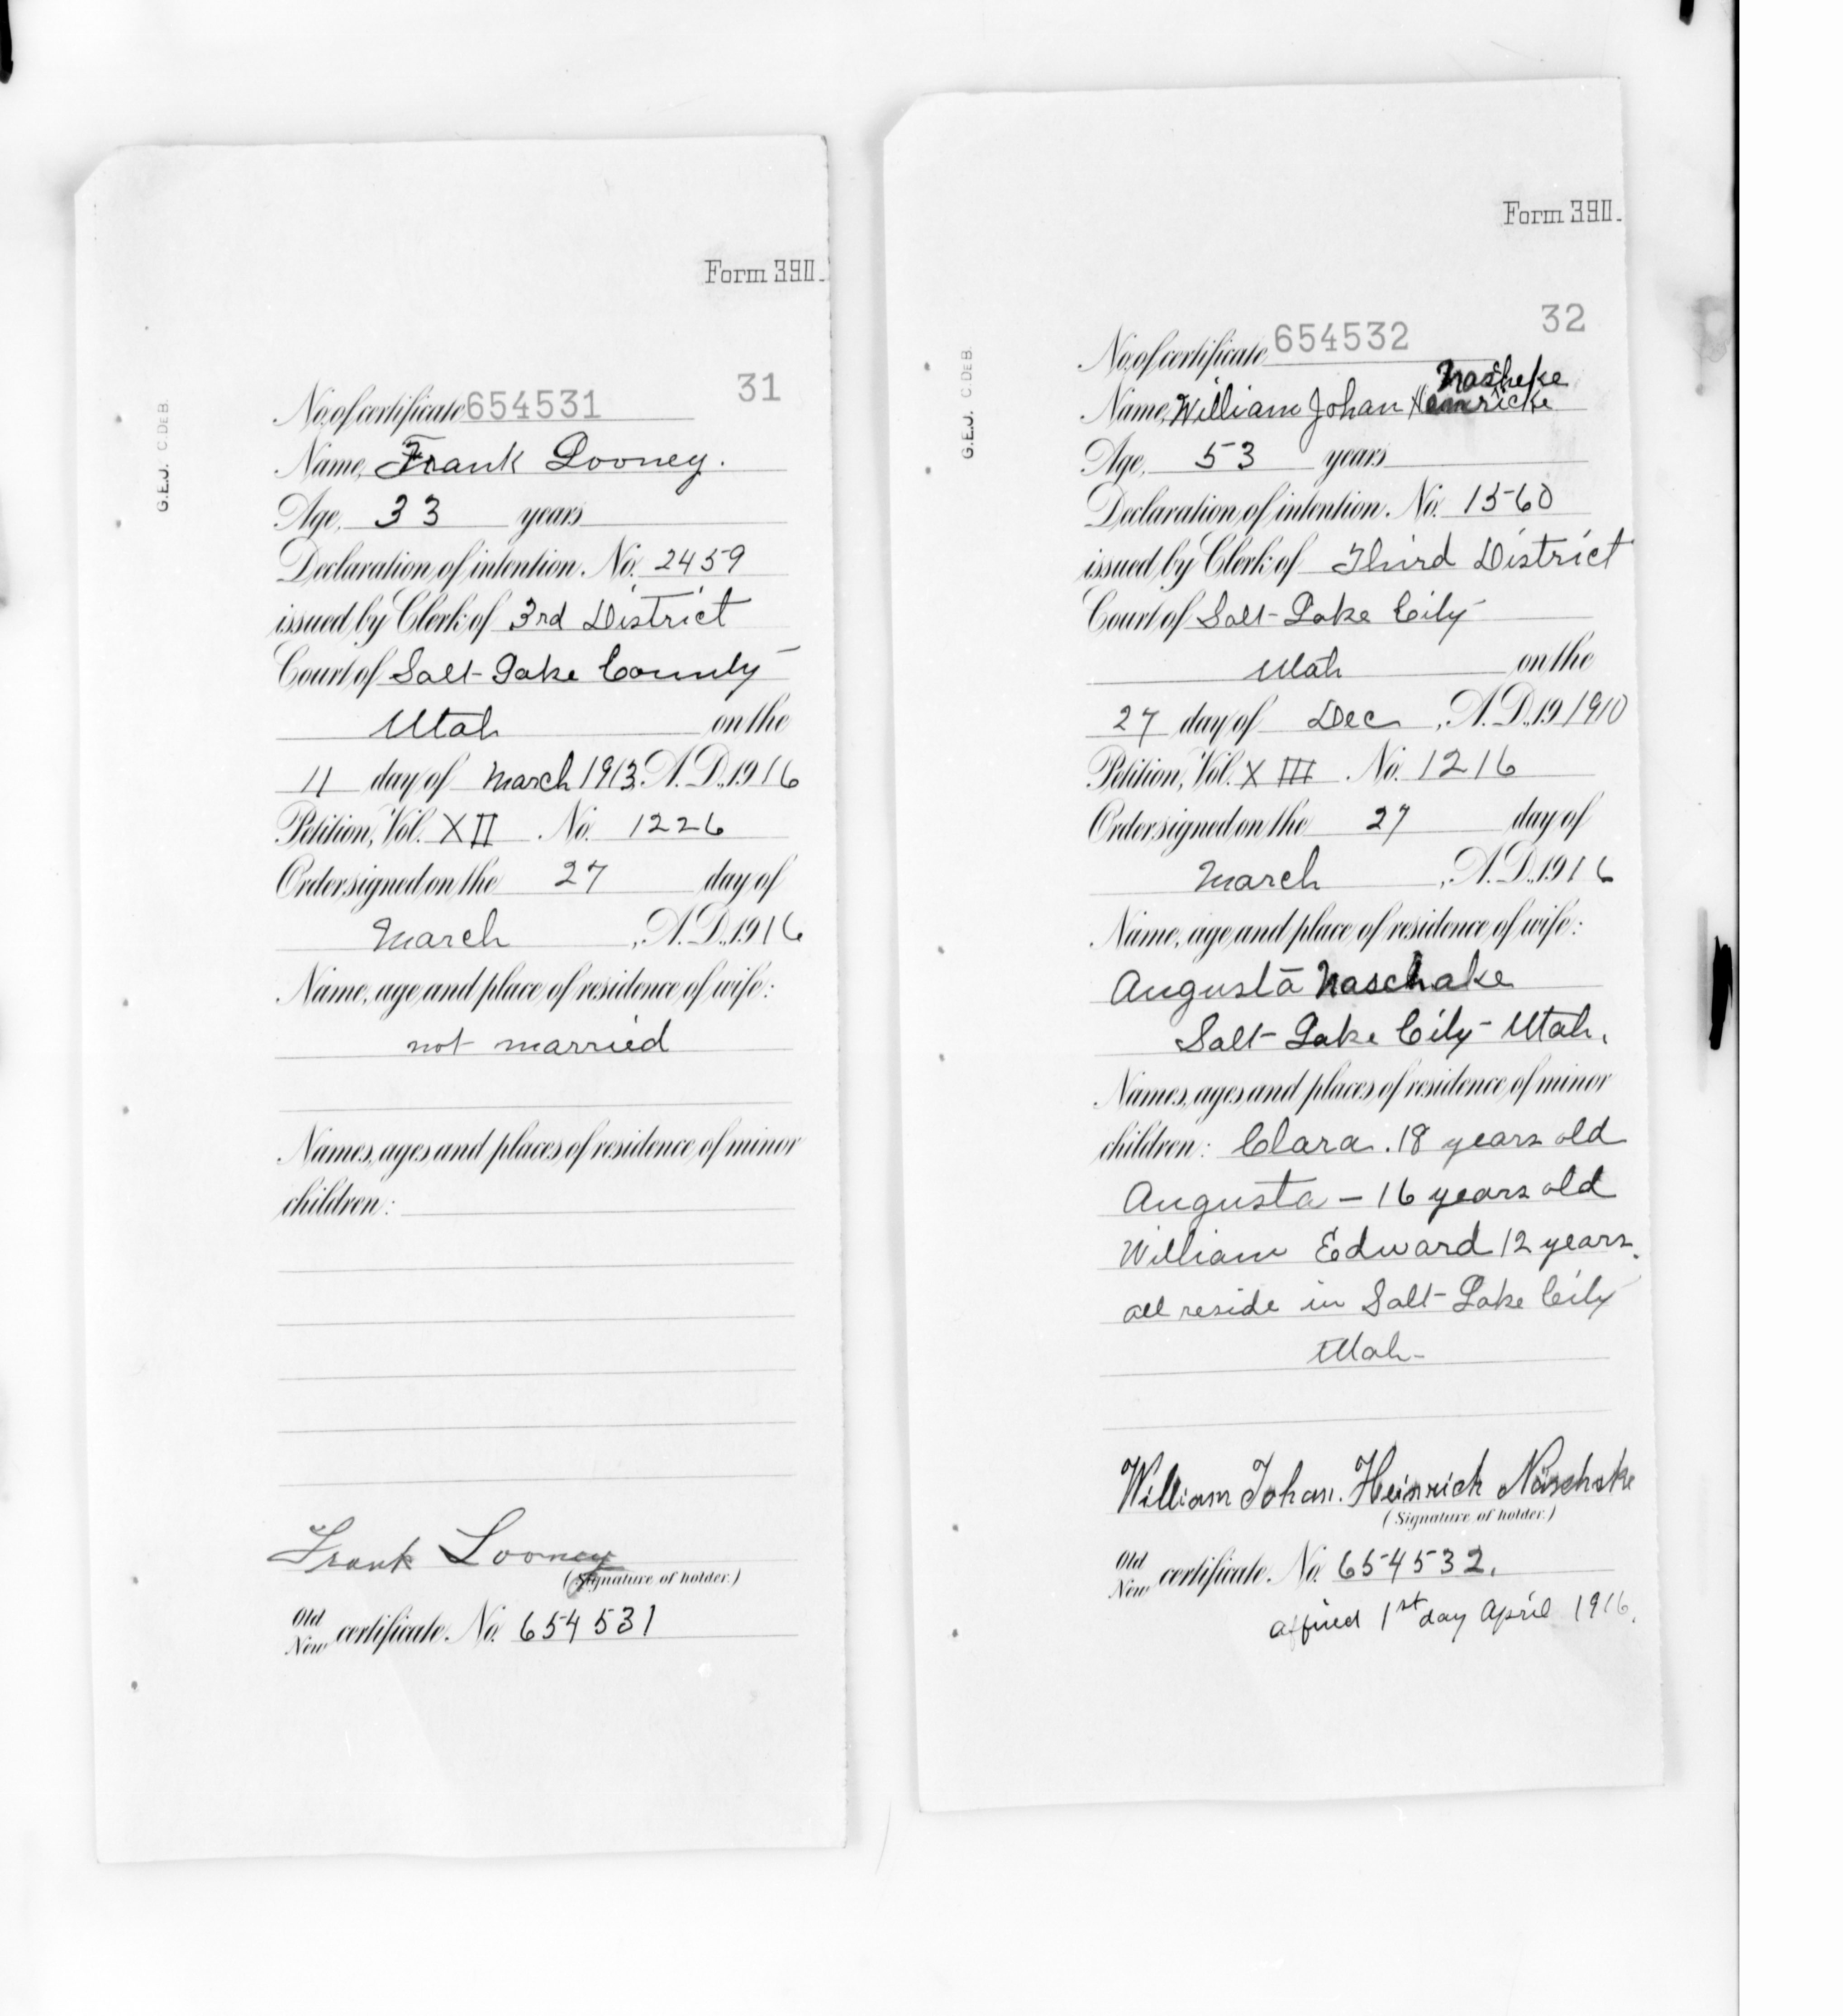 Form 390.
G.E.J. C.DEB.
31
No. of certificate 654531
Name, Frank Looney.
Age, 33 years
Declaration of intention. No. 2459
issued by Clerk of 3rd District
Court of Salt Lake County
Utah on the
11 day of March 1913, A.D., 1916
Petition, Vol. XII No. 1226
Order signed on the 27 day of
March, A.D., 1916
Name, age and place of residence of wife:
not married
Names, ages and places of residence of minor
children:
Frank Looney
(Signature of holder.)
Old
New certificate. No. 654531
Form 390.
G.E.J. C.DEB.
32
No. of certificate 654532
Nascheke
Name, William Johan
Age, 53 years
Declaration of intention. No. 1560
issued by Clerk of Third District
Court of Salt Lake City
Utah on the
27 day of Dec, A.D., 19 1910
Petition, Vol. XIII No. 1216
Order signed on the 27 day of
March, A.D., 1916
Name, age and place of residence of wife:
Augusta Naschake
Salt Lake City Utah.
Names, ages and places of residence of minor
children: Clara. 18 years old
Augusta - 16 years old
William Edward 12 years.
all reside in Salt Lake City
Utah-
William Johan. Heinrich Naschake
(Signature of holder.)
Old
New certificate. No. 654532.
1st day April 1916.